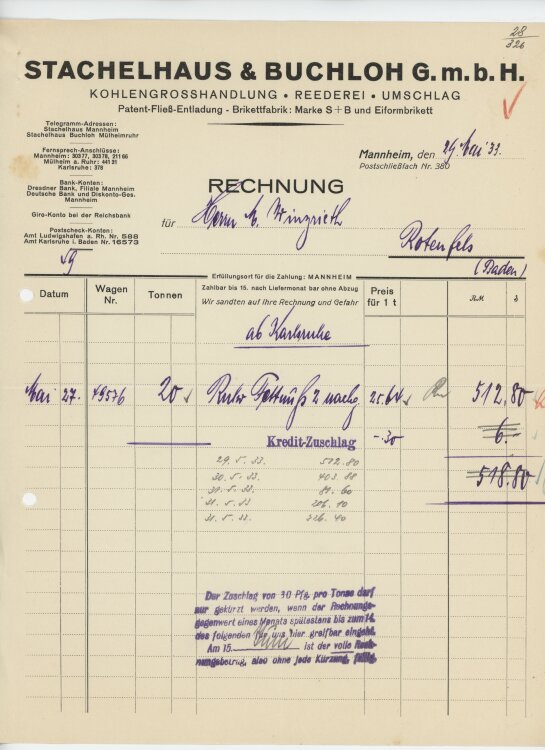 28
326
STACHELHAUS & BUCHLOH G.m.b.H.
KOHLENGROSSHANDLUNG · REEDEREI · UMSCHLAG
Patent-Fließ-Entladung - Brikettfabrik: Marke S+B und Eiformbrikett
Telegramm-Adressen:
Stachelhaus Mannheim
Stachelhaus Buchloh Mülheimruhr
Fernsprech-Anschlüsse:
Mannheim: 30377, 30378, 211 66
Mülheim a. Ruhr: 441 31
Karlsruhe: 378
Bank-Konten:
Dresdner Bank, Filiale Mannheim
Deutsche Bank und Diskonto-Ges.
Mannheim
Giro-Konto bei der Reichsbank
Postscheck-Konten:
Amt Ludwigshafen a. Rh. Nr. 588
Amt Karlsruhe i. Baden Nr. 16573
Mannheim, den 29. Mai 33.
Postschließfach Nr. 360
RECHNUNG
für Herrn
Rotenfels
(Baden)
Erfüllungsort für die Zahlung: MANNHEIM
Zahlbar bis 15. nach Liefermonat bar ohne Abzug
Wir sandten auf Ihre Rechnung und Gefahr
Datum Wagen Nr. Tonnen Preis für 1 t RM
ab Karlsruhe
Mai 27. 49576 20 Fettnuß 2 25.64 512.80
Kredit-Zuschlag -.30 6.-
518.80
29. 5. 33. 512.80
30. 5. 33. 403.88
31. 5. 33. 89.60
31. 5. 33. 206.10
31. 5. 33. 326.40
Der Zuschlag von 30 Pfg. pro Tonne darf
nur gekürzt werden, wenn der Rechnungs-
gegenwert eines Monats spätestens bis zum 14.
des folgenden für uns hier greifbar eingeht.
Am 15. ist der volle Rech-
nungsbetrag, also ohne jede Kürzung, fällig.